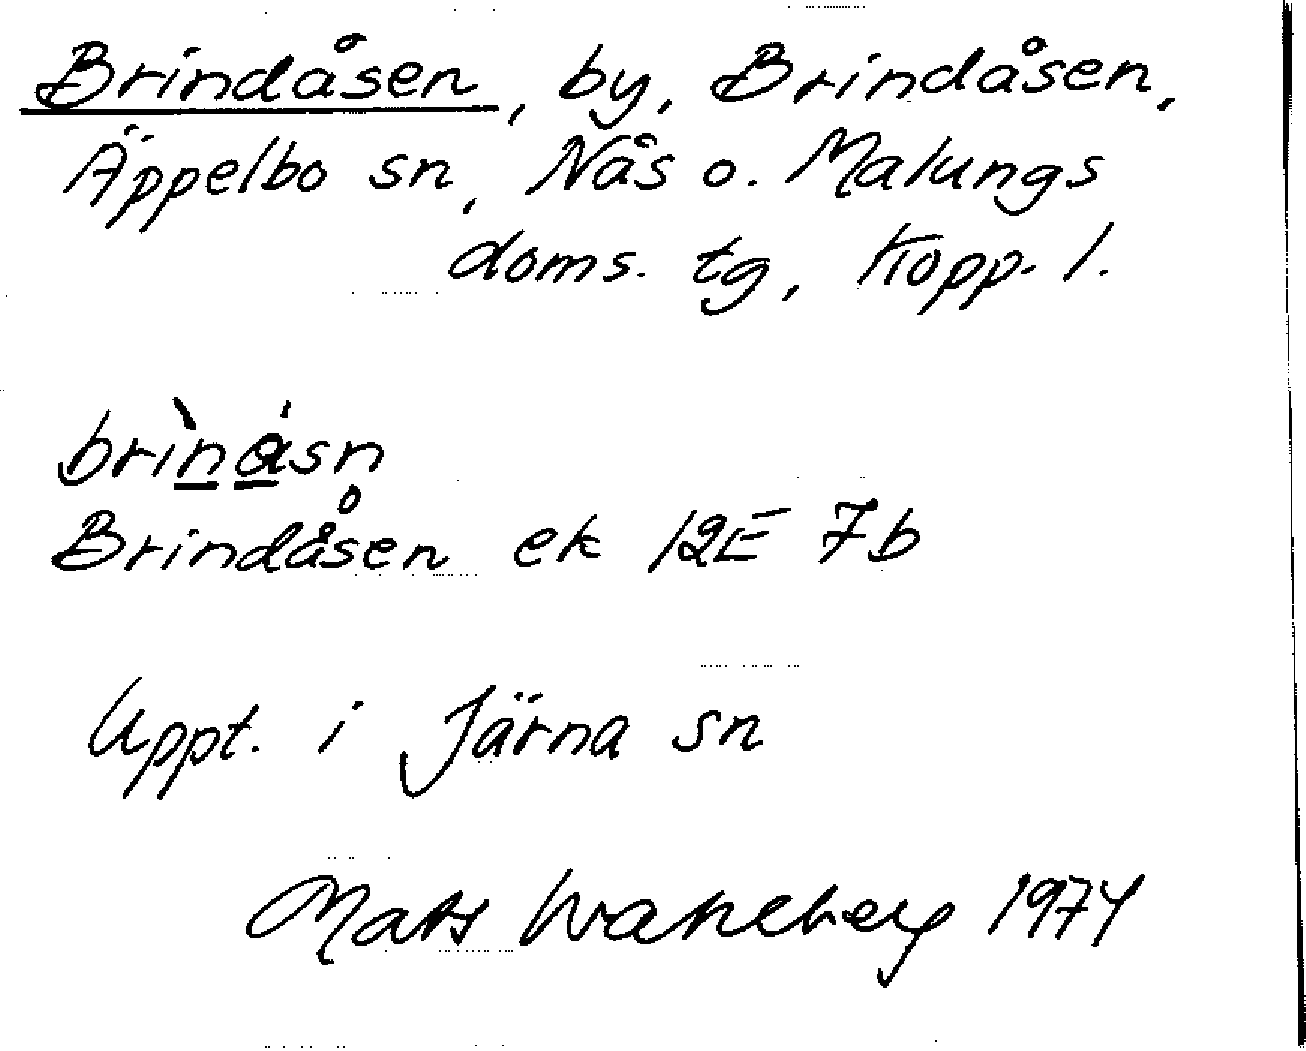 Brindåsen, by, Brindåsen,
Äppelbo sn, Nås o. Malungs
doms. tg, Kopp. l.
brìnåsn
Brindåsen ek 12E 7b
Uppt. i Järna sn
Mats Wahlberg 1974